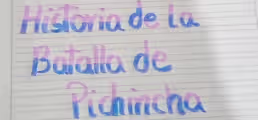 Historia de la
Batalla de
Pichincha